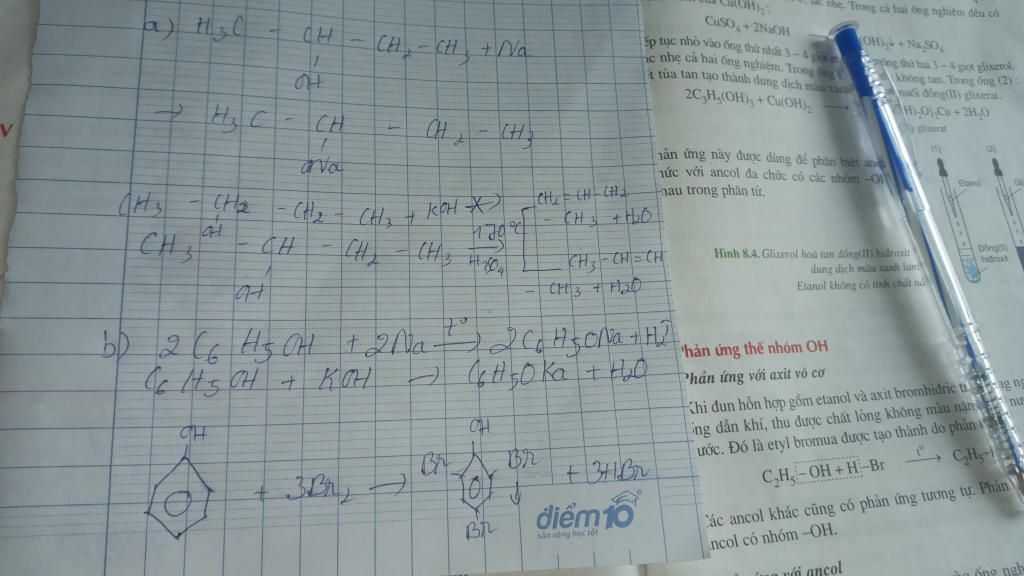 a) H₃C - CH - CH₂ - CH₃ + Na
OH
→ H₃C - CH - CH₂ - CH₃
ONa
CH₃ - CH₂ - CH₂ - CH₃ + KOH -X->
OH
CH₃ - CH - CH₂ - CH₃
OH
H₂SO₄
CH₂ = CH - CH₂
- CH₃ + H₂O
CH₃ - CH = CH
- CH₃ + H₂O
b) 2C₆H₅OH + 2Na t° → 2C₆H₅ONa + H₂
C₆H₅OH + KOH → C₆H₅OKa + H₂O
OH
+ 3Br₂ →
OH
Br
Br ↓
Br
+ 3HBr
điểm10
sẵn sàng học tốt
Cu(OH)₂ :
nhẹ. Trong cả hai ống nghiệm đều có
CuSO₄ + 2NaOH
OH)₂↓ + Na₂SO₄
ếp tục nhỏ vào ống thứ nhất 3 – 4 giọt
ống thứ hai 3 – 4 giọt glixerol.
ắc nhẹ cả hai ống nghiệm. Trong ống (
không tan. Trong ống (2) :
t tủa tan tạo thành dung dịch màu xanh
muối đồng(II) glixerat.
2C₃H₅(OH)₃ + Cu(OH)₂
H)₂O]₂Cu + 2H₂O
glixerat
ản ứng này được dùng để phân biệt
hức với ancol đa chức có các nhóm –OH
hau trong phân tử.
(1)
(2)
Etanol
Đồng(II)
hiđroxit
Hình 8.4. Glixerol hoà tan đồng(II) hiđroxit
dung dịch màu xanh lam
Etanol không có tính chất
Phản ứng thế nhóm OH
Phản ứng với axit vô cơ
Khi đun hỗn hợp gồm etanol và axit bromhiđric
ống dẫn khí, thu được chất lỏng không màu
ước. Đó là etyl bromua được tạo thành do phản
C₂H₅ – OH + H – Br t° → C₂H₅
Các ancol khác cũng có phản ứng tương tự. Phản
ancol có nhóm –OH.
ứng với ancol